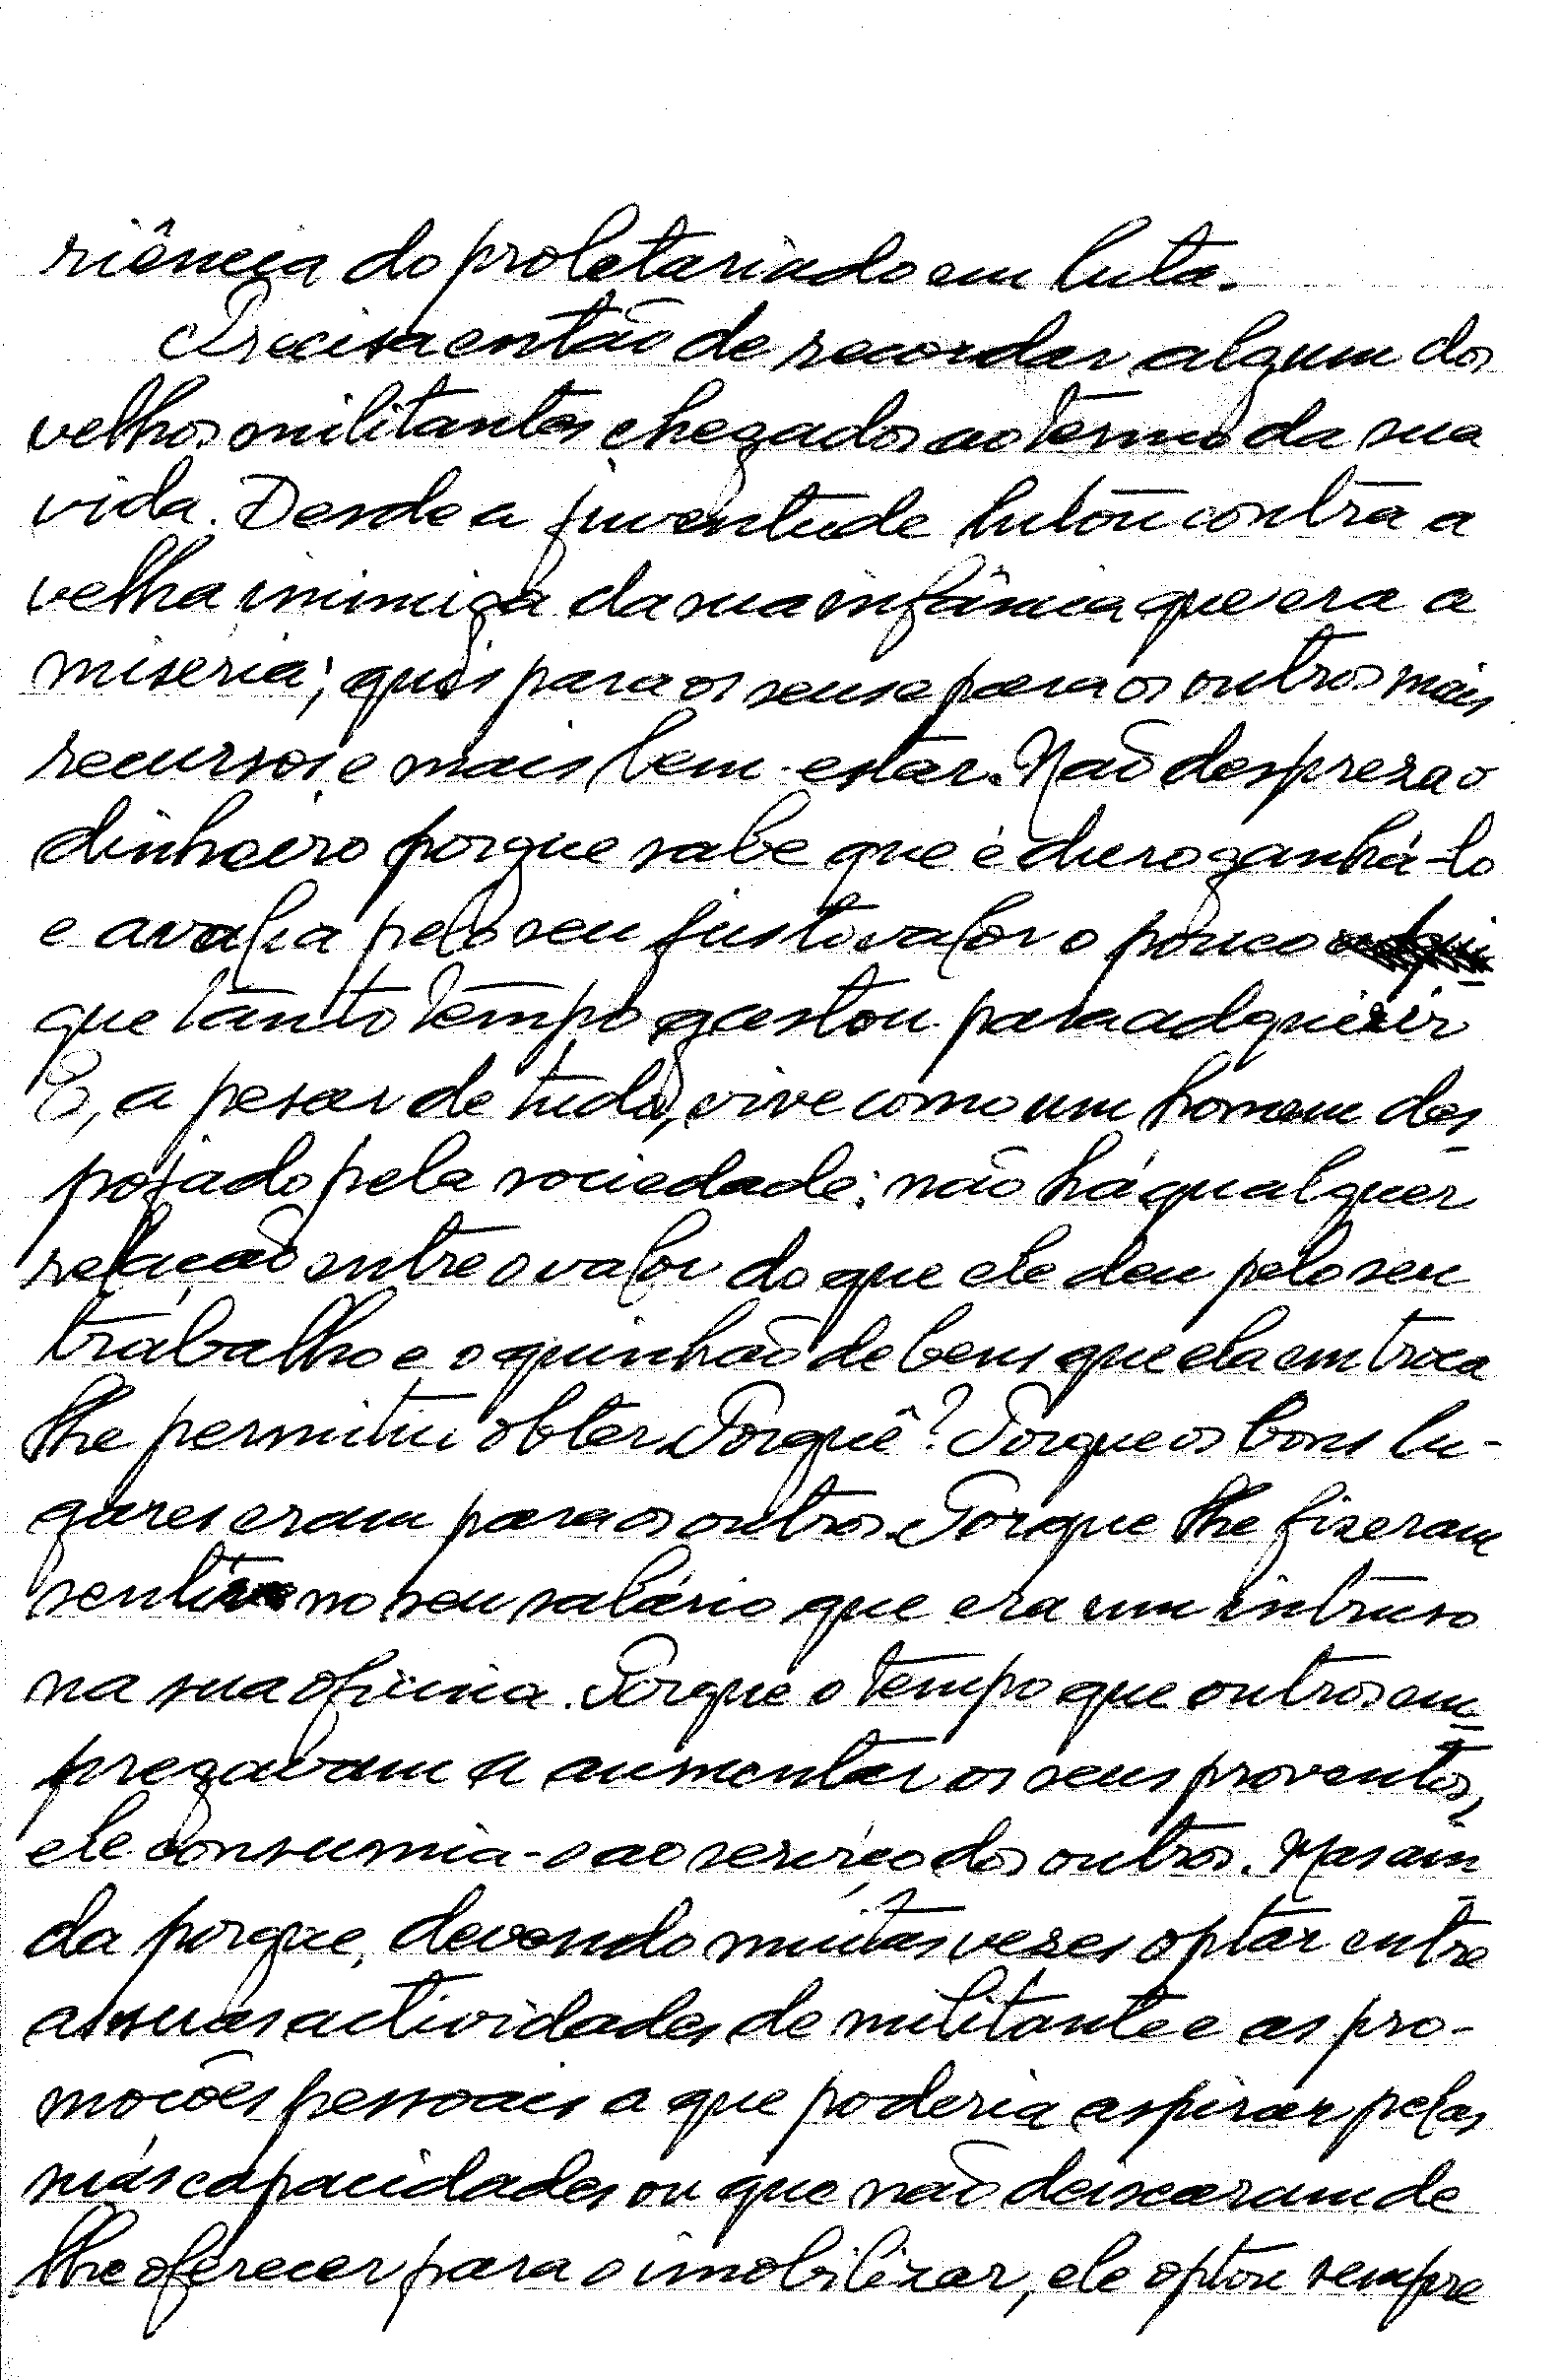 riência do proletariado em luta.
Precisa então de recordar algum dos
velhos militantes chegados ao termo da sua
vida. Desde a juventude lutou contra a
velha inimiga da sua infância que era a
miséria; quis para os seus e para os outros mais
recursos e mais bem-estar. Não despreza o
dinheiro porque sabe que é duro ganhá-lo
e avalia pelo seu justo valor o pouco
que tanto tempo gastou para adquirir
E, a pesar de tudo, vive como um homem des-
pojado pela sociedade: não há qualquer
relação entre o valor do que ele deu pelo seu
trabalho e o quinhão de bens que ela em troca
lhe permitiu obter. Porquê? Porque os bons lu-
gares eram para os outros. Porque lhe fizeram
sentir no seu salário que era um intruso
na sua oficina. Porque o tempo que outros em-
pregavam a aumentar os seus proventos,
ele consumia-o ao serviço dos outros. Mas ain-
da porque, devendo muitas vezes optar entre
as suas actividades de militante e as pro-
moções pessoais a que poderia aspirar pelas
suas capacidades ou que não deixaram de
lhe oferecer para o imobilizar, ele optou sempre